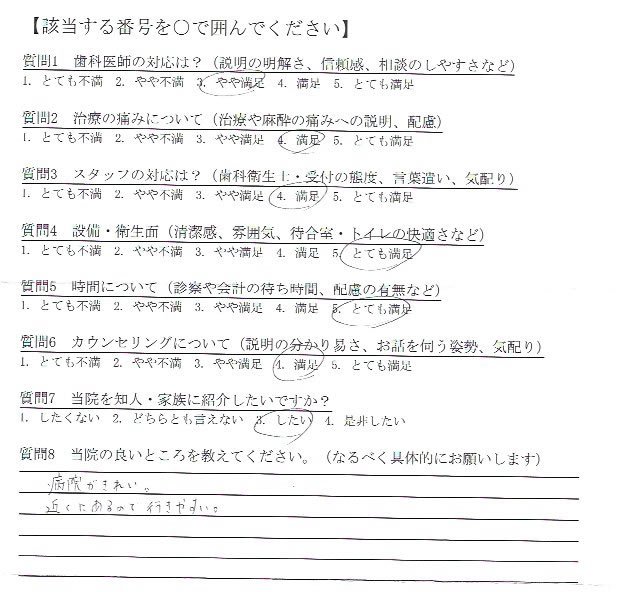 【該当する番号を○で囲んでください】
質問1 歯科医師の対応は？（説明の明解さ、信頼感、相談のしやすさなど）
1. とても不満 2. やや不満 3. やや満足 4. 満足 5. とても満足
質問2 治療の痛みについて（治療や麻酔の痛みへの説明、配慮）
1. とても不満 2. やや不満 3. やや満足 4. 満足 5. とても満足
質問3 スタッフの対応は？（歯科衛生士・受付の態度、言葉遣い、気配り）
1. とても不満 2. やや不満 3. やや満足 4. 満足 5. とても満足
質問4 設備・衛生面（清潔感、雰囲気、待合室・トイレの快適さなど）
1. とても不満 2. やや不満 3. やや満足 4. 満足 5. とても満足
質問5 時間について（診察や会計の待ち時間、配慮の有無など）
1. とても不満 2. やや不満 3. やや満足 4. 満足 5. とても満足
質問6 カウンセリングについて（説明の分かり易さ、お話を伺う姿勢、気配り）
1. とても不満 2. やや不満 3. やや満足 4. 満足 5. とても満足
質問7 当院を知人・家族に紹介したいですか？
1. したくない 2. どちらとも言えない 3. したい 4. 是非したい
質問8 当院の良いところを教えてください。（なるべく具体的にお願いします）
病院がきれい。
近くにあるので行きやすい。